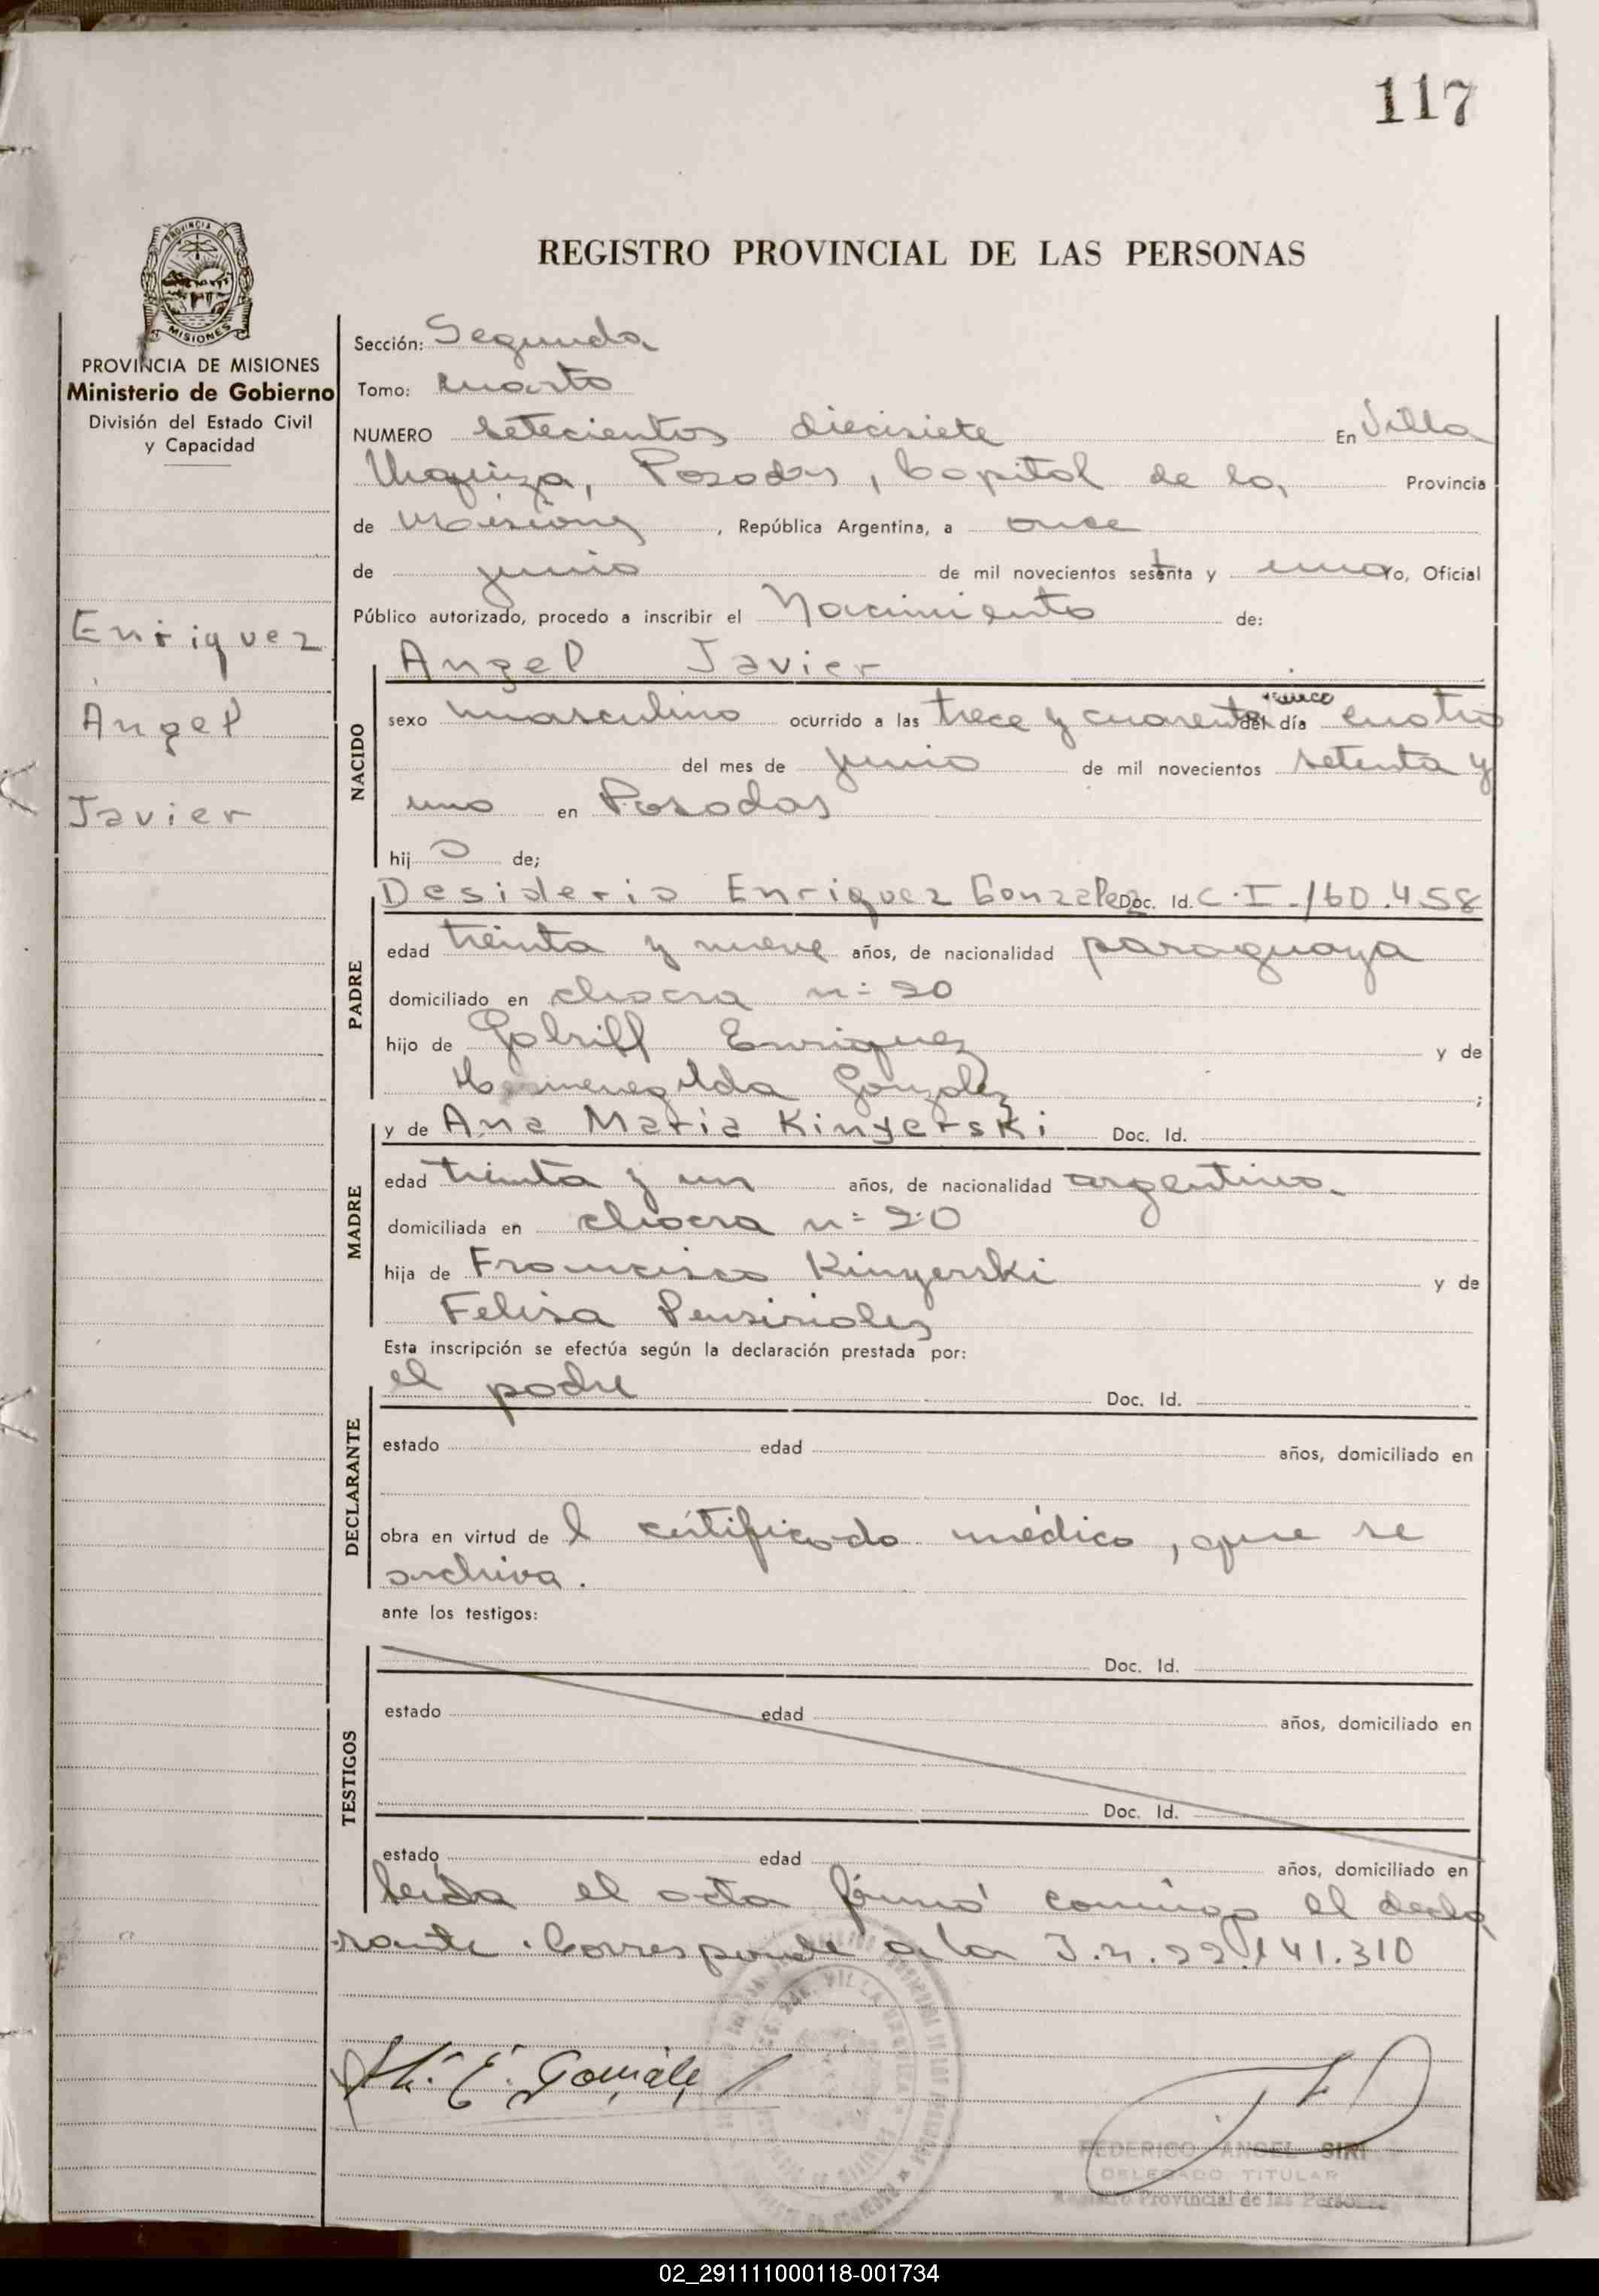 117
REGISTRO PROVINCIAL DE LAS PERSONAS
PROVINCIA DE MISIONES
Ministerio de Gobierno
División del Estado Civil
y Capacidad
Enriquez
Angel
Javier
Sección: Segunda
Tomo: cuarto
NUMERO setecientos diecisiete En Villa
Urquiza, Posadas, Capital de la, Provincia
de Misiones, República Argentina, a once
de junio de mil novecientos setenta y uno yo, Oficial
Público autorizado, procedo a inscribir el Nacimiento de:
Angel Javier
NACIDO
sexo masculino ocurrido a las trece y cuarenta cinco del día cuatro
del mes de junio de mil novecientos setenta y
uno en Posadas
hij o de;
PADRE
Desiderio Enriquez Gonzalez Doc. Id. C.I. 160.458
edad treinta y nueve años, de nacionalidad paraguaya
domiciliado en chacra n= 20
hijo de Enriquez y de
Hermenegilda Gonzalez ;
MADRE
y de Ana Maria Kinyerski Doc. Id.
edad treinta y un años, de nacionalidad argentina.
domiciliada en chacra n= 20
hija de Francisco Kinyerski y de
Felisa
Esta inscripción se efectúa según la declaración prestada por:
DECLARANTE
el padre Doc. Id.
estado edad años, domiciliado en
obra en virtud de l certificado médico, que se
archiva.
ante los testigos:
TESTIGOS
Doc. Id.
estado edad años, domiciliado en
Doc. Id.
estado edad años, domiciliado en
leída el acta firmó conmigo el decla
rante. Corresponde a la I.n. 22.141.310
E. Gonzále
FEDERICO ANGEL SIRI
DELEGADO TITULAR
Registro Provincial de las Personas
02_291111000118-001734